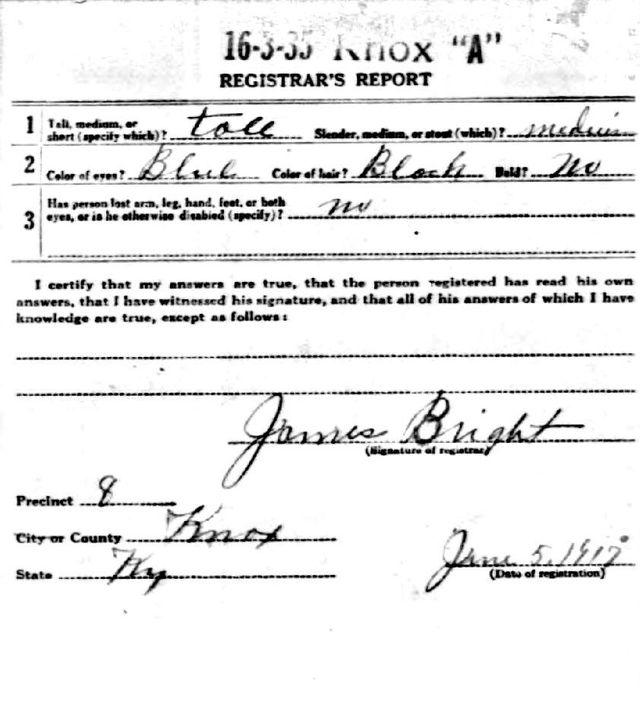 16-3-35 Knox "A"
REGISTRAR'S REPORT
1 Tall, medium, or short (specify which)? tall Slender, medium, or stout (which)? medium
2 Color of eyes? Blue Color of hair? Black Bald? No
3 Has person lost arm, leg, hand, foot, or both
eyes, or is he otherwise disabled (specify)? no
I certify that my answers are true, that the person registered has read his own
answers, that I have witnessed his signature, and that all of his answers of which I have
knowledge are true, except as follows:
James Bright
(Signature of registrar)
Precinct 8
City or County Knox
State Ky
June 5, 1917
(Date of registration)